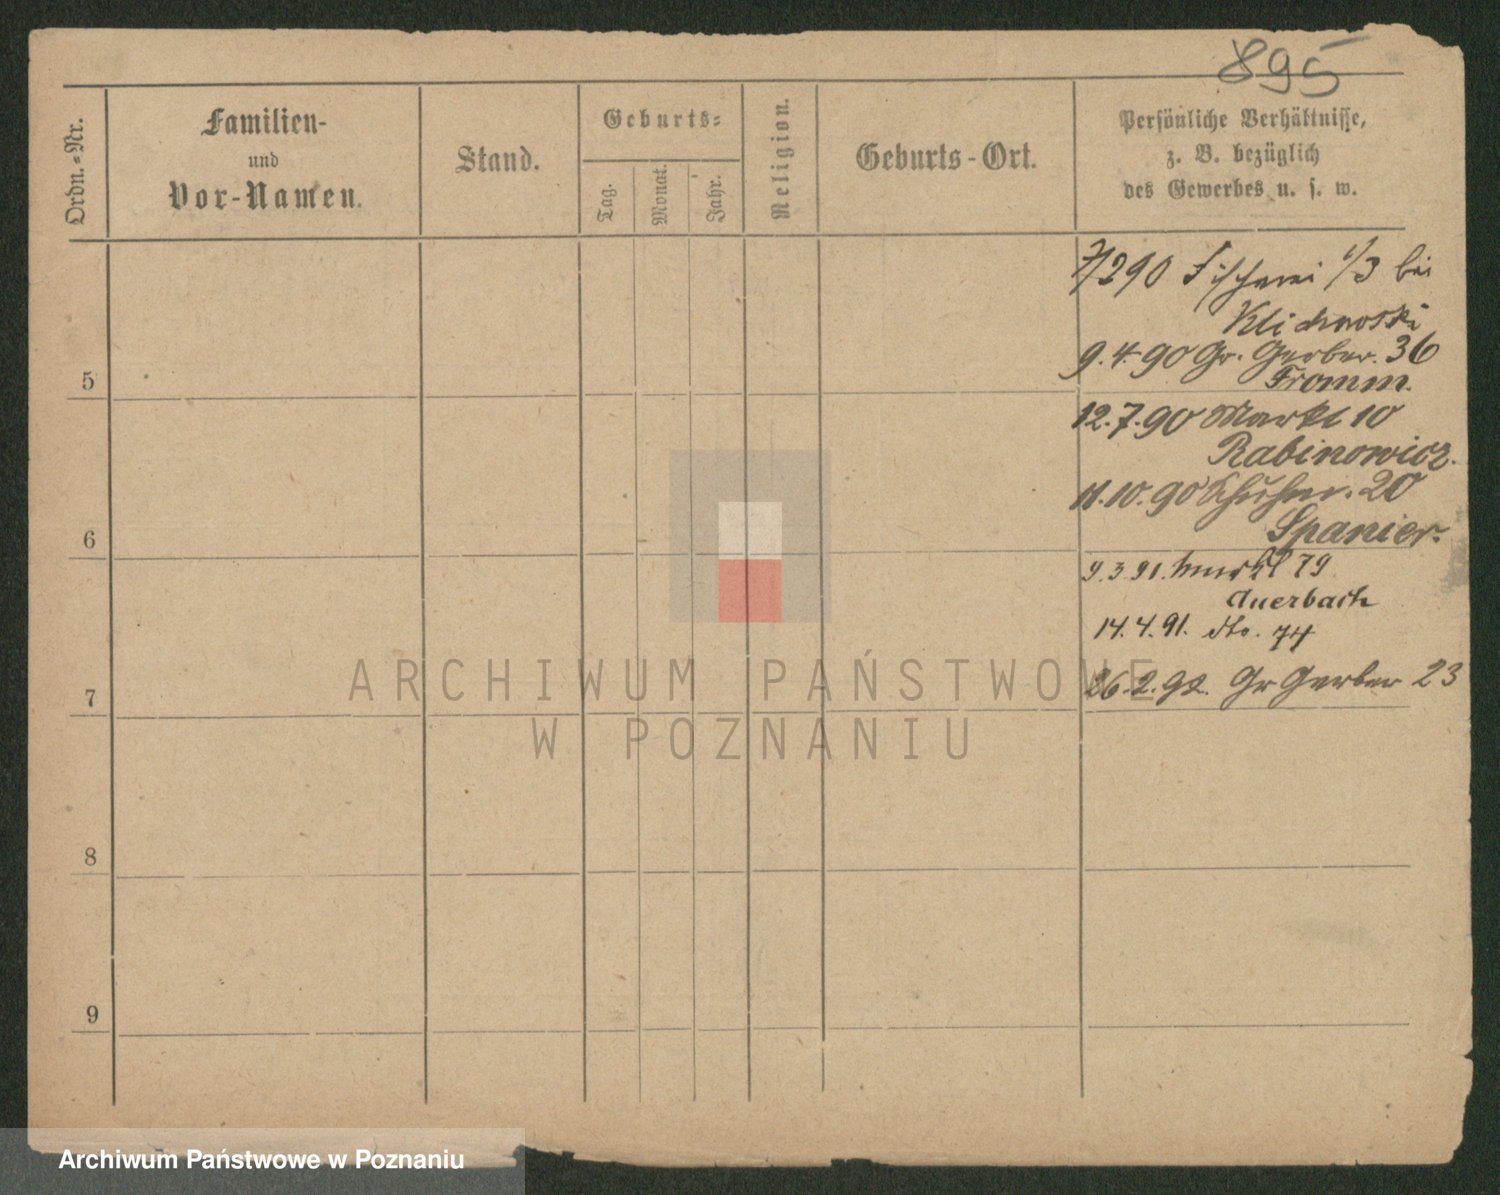 895
Ordn.-Nr.
Familien-
und
Vor-Namen.
Stand.
Geburts-
Tag.
Monat.
Jahr.
Religion.
Geburts-Ort.
Persönliche Verhältnisse,
z. B. bezüglich
des Gewerbes u. s. w.
7/290 Fischerei 1/3 bei
9.4.90 Gr. Gerber. 36
Fromm.
5
12.7.90 Markt 10
Rabinowicz.
11.10.90 20
Spanier.
6
9.3.91. Markt 79
Auerbach
14.4.91. dto. 74
26.2.92. Gr Gerber 23
7
8
9
ARCHIWUM PAŃSTWOWE
W POZNANIU
Archiwum Państwowe w Poznaniu